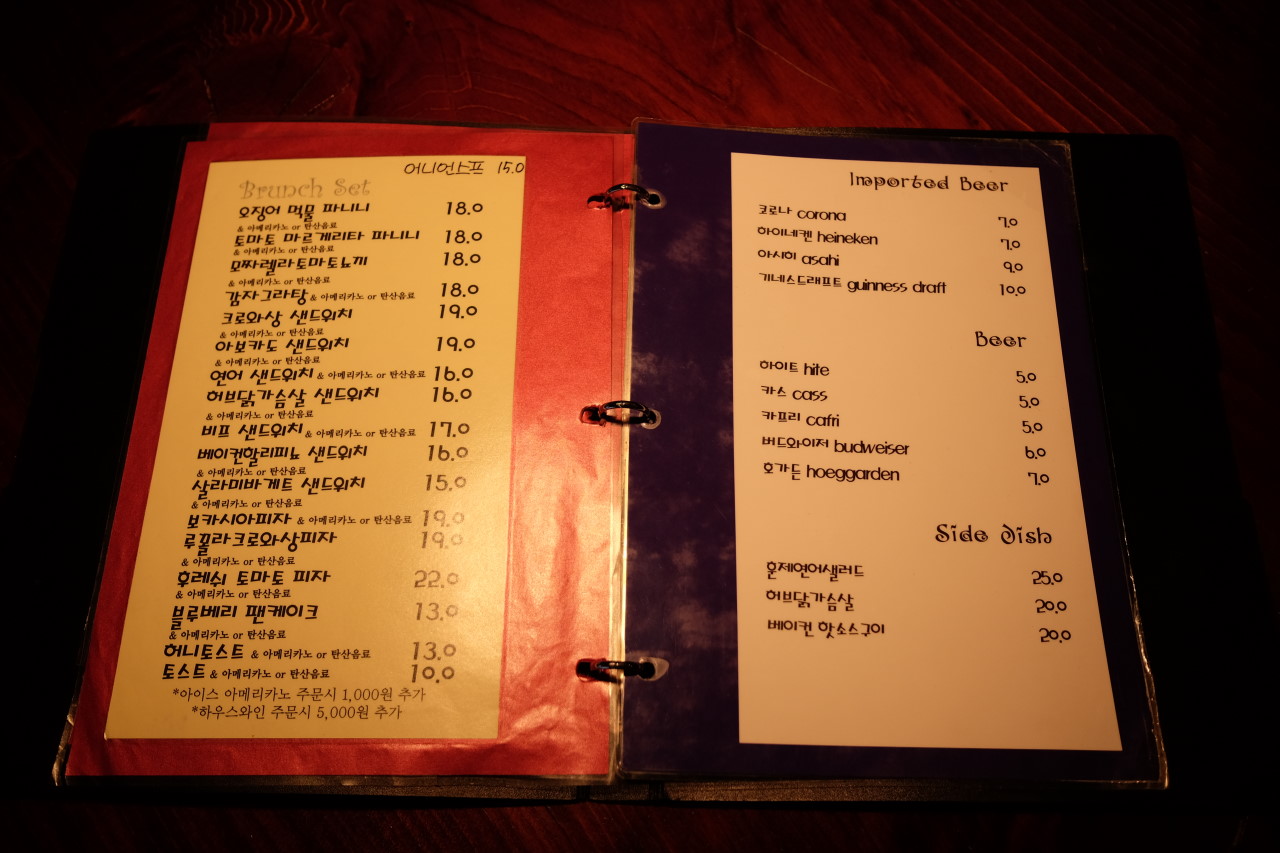 어니언스프 15.0
Brunch Set
오징어 먹물 파니니 18.0
& 아메리카노 or 탄산음료
토마토 마르게리타 파니니 18.0
& 아메리카노 or 탄산음료
모짜렐라토마토뇨끼 18.0
& 아메리카노 or 탄산음료
감자그라탕 & 아메리카노 or 탄산음료 18.0
크로와상 샌드위치 19.0
& 아메리카노 or 탄산음료
아보카도 샌드위치 19.0
& 아메리카노 or 탄산음료
연어 샌드위치 & 아메리카노 or 탄산음료 16.0
허브닭가슴살 샌드위치 16.0
& 아메리카노 or 탄산음료
비프 샌드위치 & 아메리카노 or 탄산음료 17.0
베이컨할리피뇨 샌드위치 16.0
& 아메리카노 or 탄산음료
살라미바게트 샌드위치 15.0
& 아메리카노 or 탄산음료
보카시아피자 & 아메리카노 or 탄산음료 19.0
루꼴라크로와상피자 19.0
& 아메리카노 or 탄산음료
후레쉬 토마토 피자 22.0
& 아메리카노 or 탄산음료
블루베리 팬케이크 13.0
& 아메리카노 or 탄산음료
허니토스트 & 아메리카노 or 탄산음료 13.0
토스트 & 아메리카노 or 탄산음료 10.0
*아이스 아메리카노 주문시 1,000원 추가
*하우스와인 주문시 5,000원 추가
Imported Beer
코로나 corona 7.0
하이네켄 heineken 7.0
아시히 asahi 9.0
기네스드래프트 guinness draft 10.0
Beer
하이트 hite 5.0
카스 cass 5.0
카프리 cafri 5.0
버드와이저 budweiser 6.0
호가든 hoeggarden 7.0
Side Dish
훈제연어샐러드 25.0
허브닭가슴살 20.0
베이컨 핫소스구이 20.0